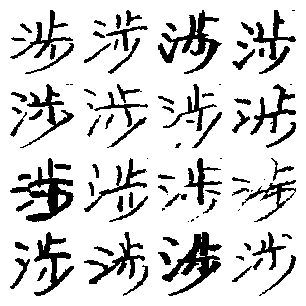 涉涉涉涉
涉涉涉涉
涉涉涉涉
涉涉涉涉